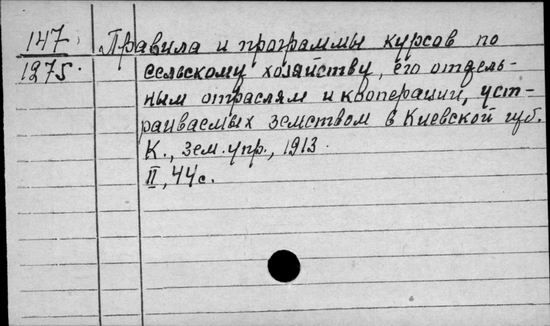 147 Правила и программы курсов по
1275. сельскому хозяйству, его отдель-
ным отраслям и кооперации, уст-
раиваемых земством в Киевской губ.
К., Зем. упр., 1913.
II, 44 с.